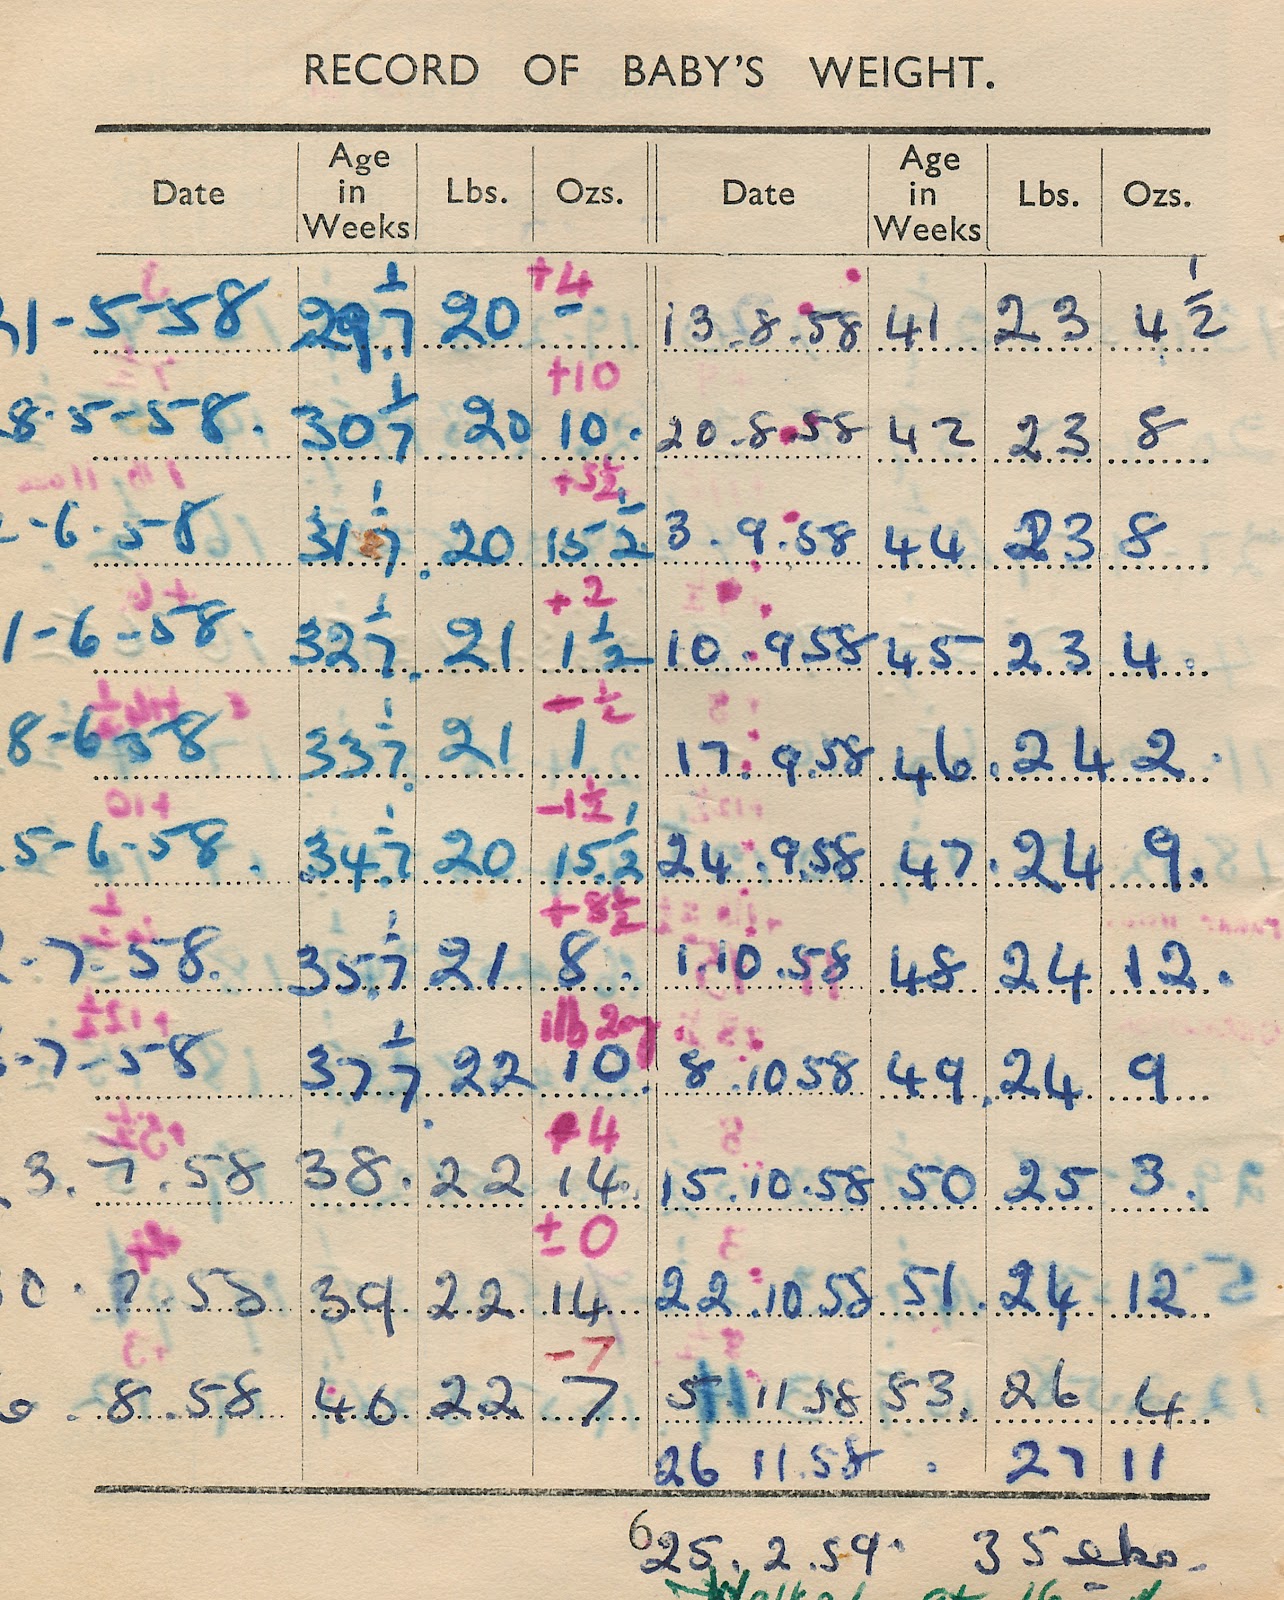 RECORD OF BABY'S WEIGHT.
Date Age in Weeks Lbs. Ozs. Date Age in Weeks Lbs. Ozs.
+4
1-5-58 29 1/7 20 - 13.8.58 41 23 4 1/2
+10
8.5-58. 30 1/7 20 10. 20.8.58 42 23 8
+5 1/2
-6.58 31 1/7 20 15 1/2 3.9.58 44 23 8
+2
1-6-58. 32 1/7 21 1 1/2 10.9.58 45 23 4.
- 1/2
8-6-58 33 1/7 21 1 17.9.58 46. 24 2.
-1 1/2
5-6-58. 34 1/7 20 15 1/2 24.9.58 47. 24 9.
+8 1/2
-7-58. 35 1/7 21 8. 1.10.58 48 24 12.
1lb 2oz
-7-58 37 1/7 22 10. 8.10.58 49. 24 9
+4
3.7.58 38. 22 14. 15.10.58 50 25 3.
±0
0.7.58 39 22 14 22.10.58 51. 24 12
-7
.8.58 40 22 7 5 11 58 53. 26 4
26 11.58 . 27 11
6
25.2.59. 35
Walked at 16